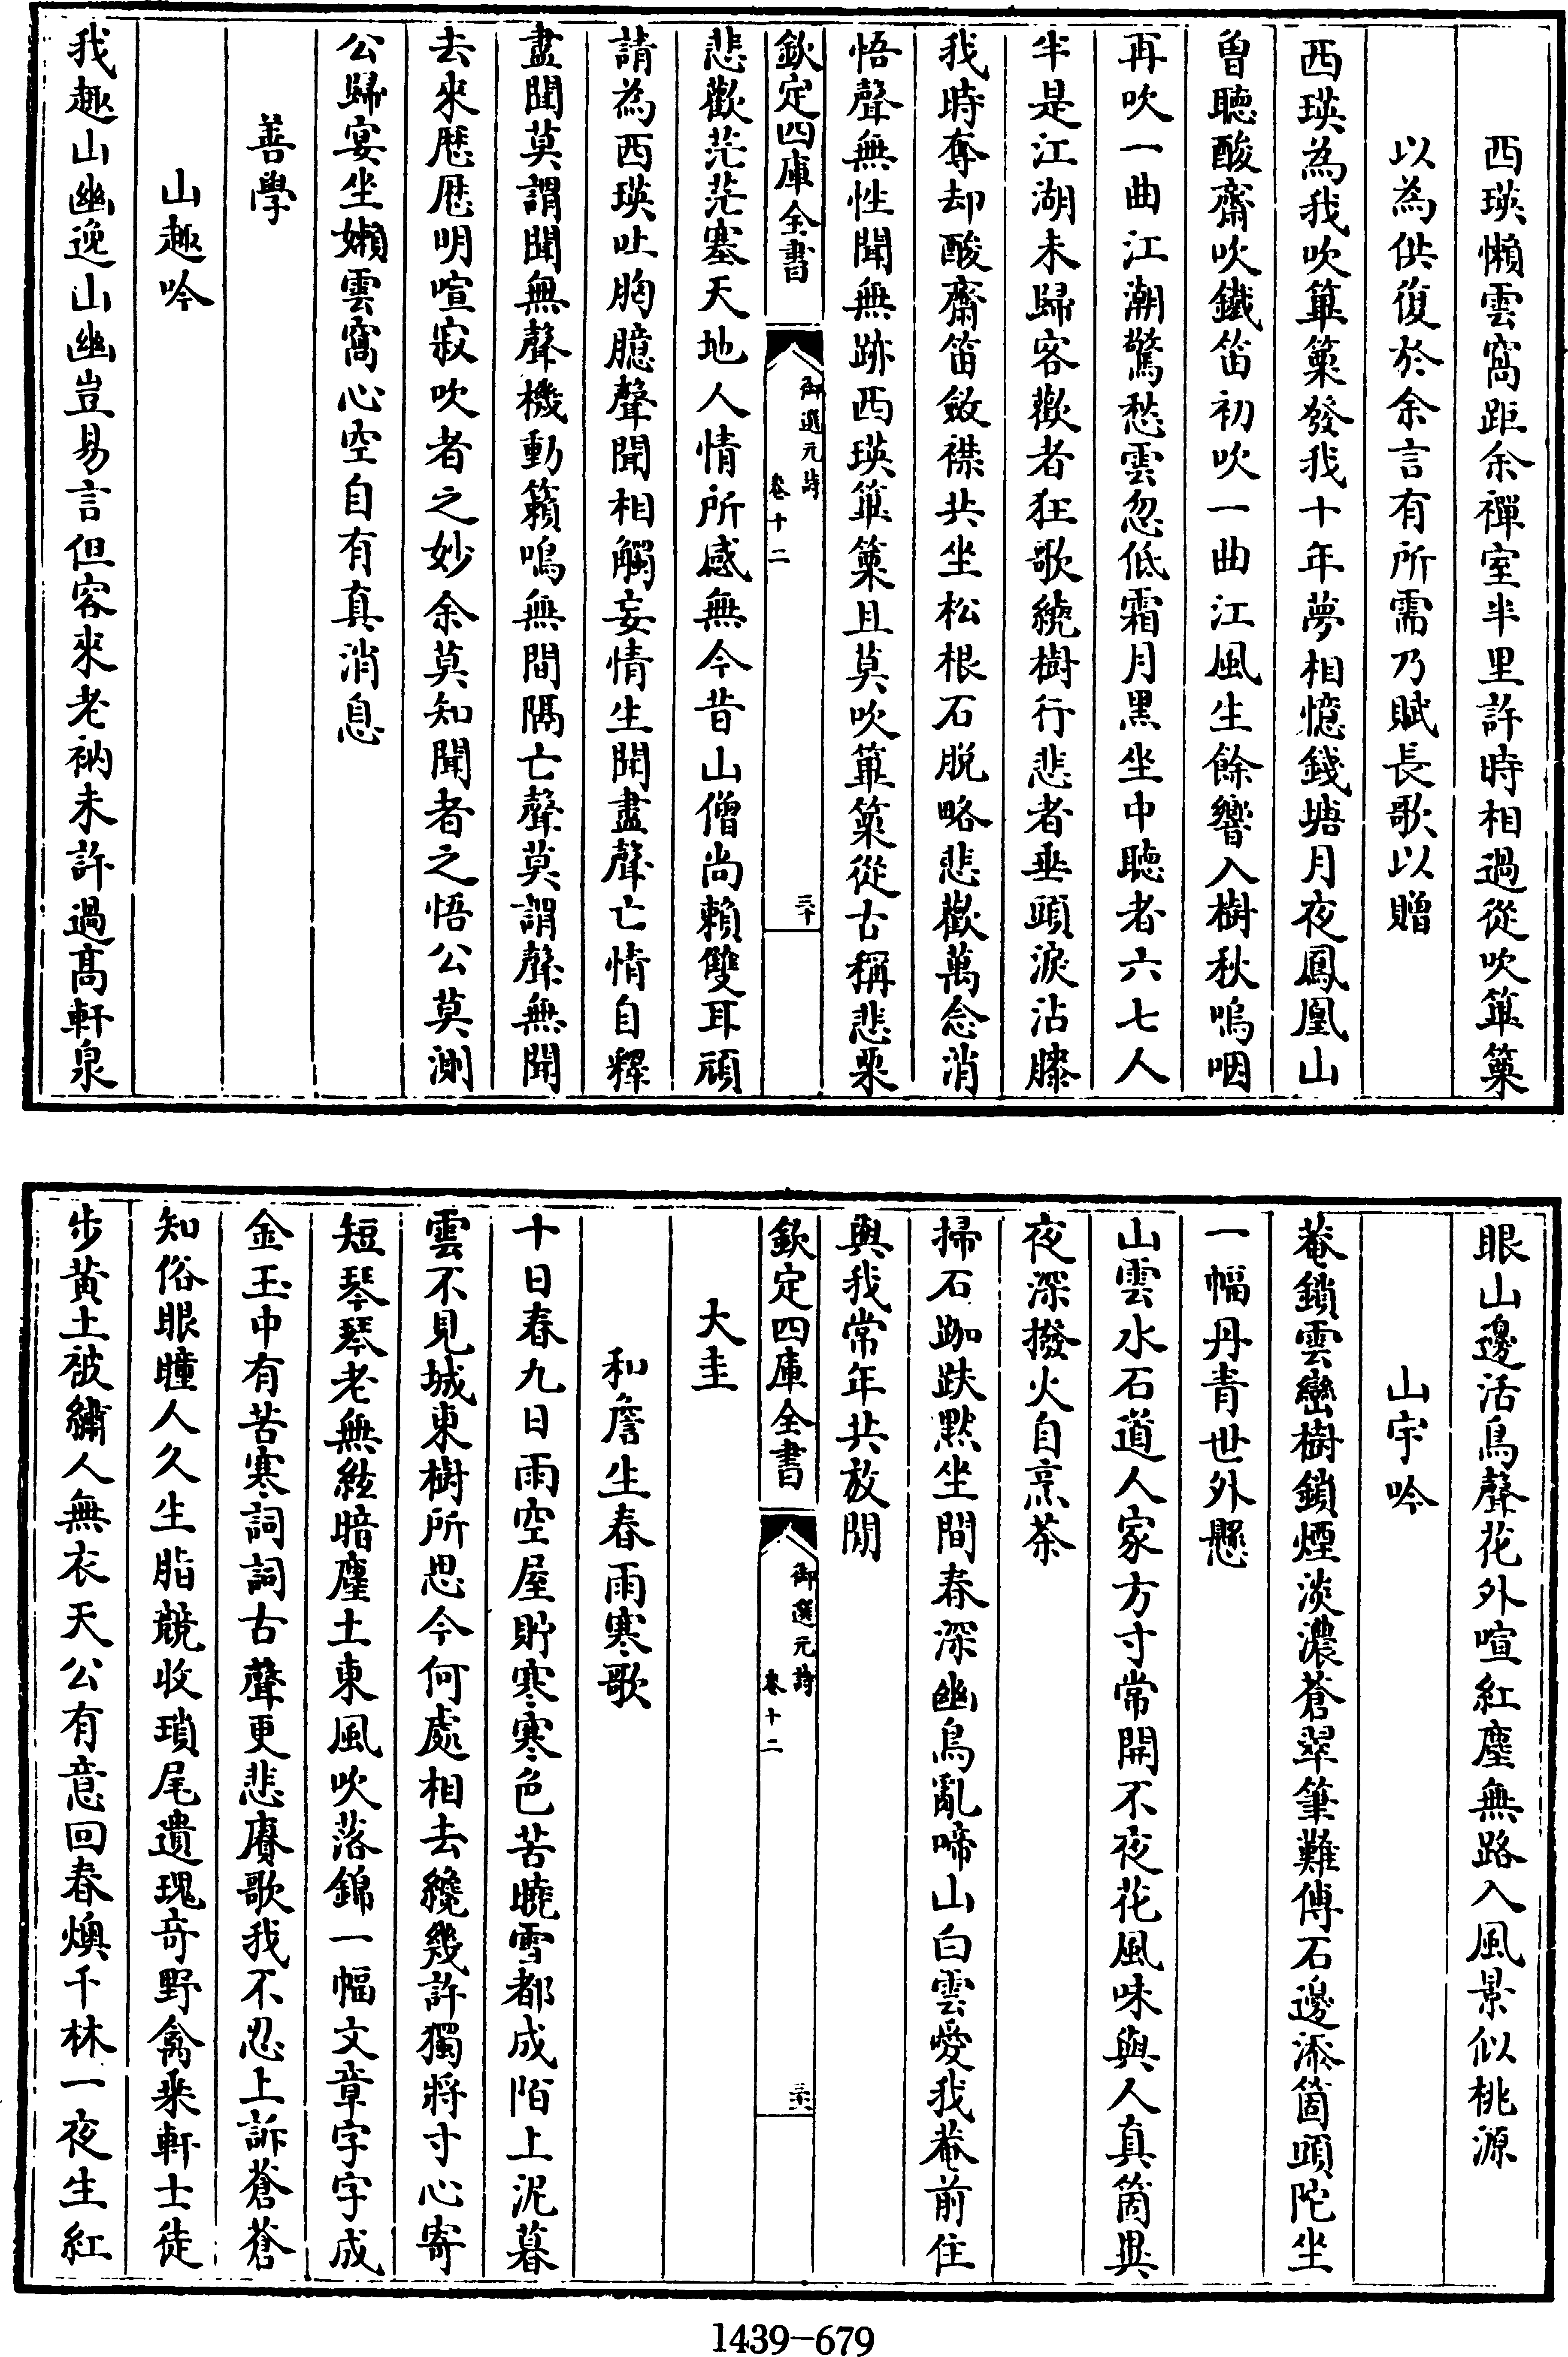 西瑛懶雲窩距余禪室半里許時相過從吹篳篥
以為供復於余言有所需乃賦長歌以贈
西瑛為我吹篳篥發我十年夢相憶錢塘月夜鳳凰山
曾聽酸齋吹鐵笛初吹一曲江風生餘響入樹秋嗚咽
再吹一曲江潮驚愁雲忽低霜月黑坐中聽者六七人
半是江湖未歸客歡者狂歌繞樹行悲者垂頭淚沾膝
我時奪却酸齋笛斂襟共坐松根石脱略悲歡萬念消
悟聲無性聞無跡西瑛篳篥且莫吹篳篥從古稱悲栗
欽定四庫全書
御選元詩
卷十二
三十
悲歡茫茫塞天地人情所感無今昔山僧尚賴雙耳頑
請為西瑛吐胸臆聲聞相觸妄情生聞盡聲亡情自釋
盡聞莫謂聞無聲機動籟鳴無間隔亡聲莫謂聲無聞
去來厯厯明喧寂吹者之妙余莫知聞者之悟公莫測
公歸宴坐嬾雲窩心空自有真消息
善學
山趣吟
我趣山幽逸山幽豈易言但容來老衲未許過髙軒泉
眼山邊活鳥聲花外喧紅塵無路入風景似桃源
山宇吟
菴鎖雲巒樹鎖煙淡濃蒼翠筆難傅石邊添箇頭陀坐
一幅丹青世外懸
山雲水石道人家方寸常開不夜花風味與人真箇異
夜深撥火自烹茶
掃石跏趺黙坐間春深幽鳥亂啼山白雲愛我菴前住
與我常年共放閒
欽定四庫全書
御選元詩
卷十二
大圭
和詹生春雨寒歌
十日春九日雨空屋貯寒寒色苦曉雪都成陌上泥暮
雲不見城東樹所思今何處相去纔幾許獨將寸心寄
短琴琴老無絃暗塵土東風吹落錦一幅文章字字成
金玉中有苦寒詞詞古聲更悲賡歌我不忍上訴蒼蒼
知俗眼瞳人久生脂競收瑣尾遺瑰竒野禽乘軒士徒
步黄土被繡人無衣天公有意回春燠千林一夜生紅
1439-679